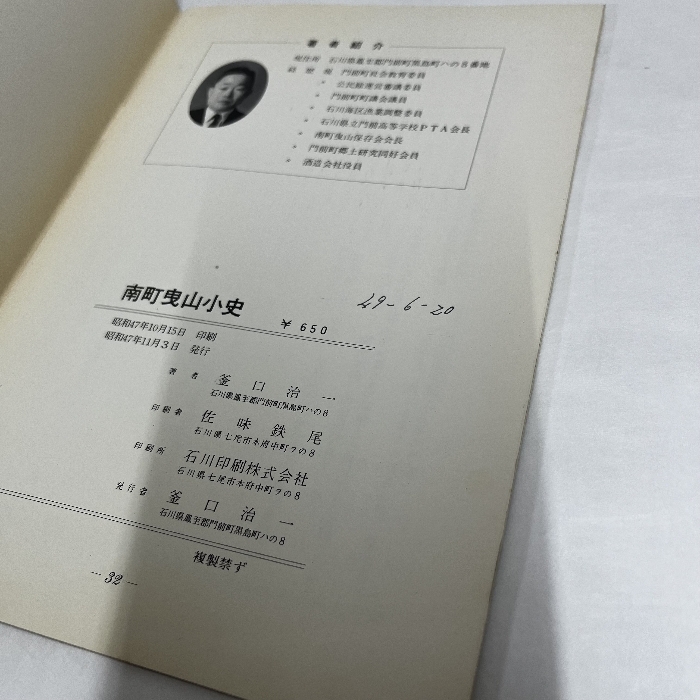 著者紹介
現住所 石川県鳳至郡門前町黒島町ハの8番地
経歴 門前町社会教育委員
〃 公民館運営審議委員
〃 門前町町議会議員
〃 石川海区漁業調整委員
〃 石川県立門前高等学校PTA会長
〃 南町曳山保存会会長
〃 門前町郷土研究同好会員
〃 酒造会社役員
南町曳山小史
¥650
49-6-20
昭和47年10月15日 印刷
昭和47年11月3日 発行
著者 釜口治一
石川県鳳至郡門前町黒島町ハの8
印刷者 佐味鉄尾
石川県七尾市本府中町ラの8
印刷所 石川印刷株式会社
石川県七尾市本府中町ラの8
発行者 釜口治一
石川県鳳至郡門前町黒島町ハの8
複製禁ず
—32—